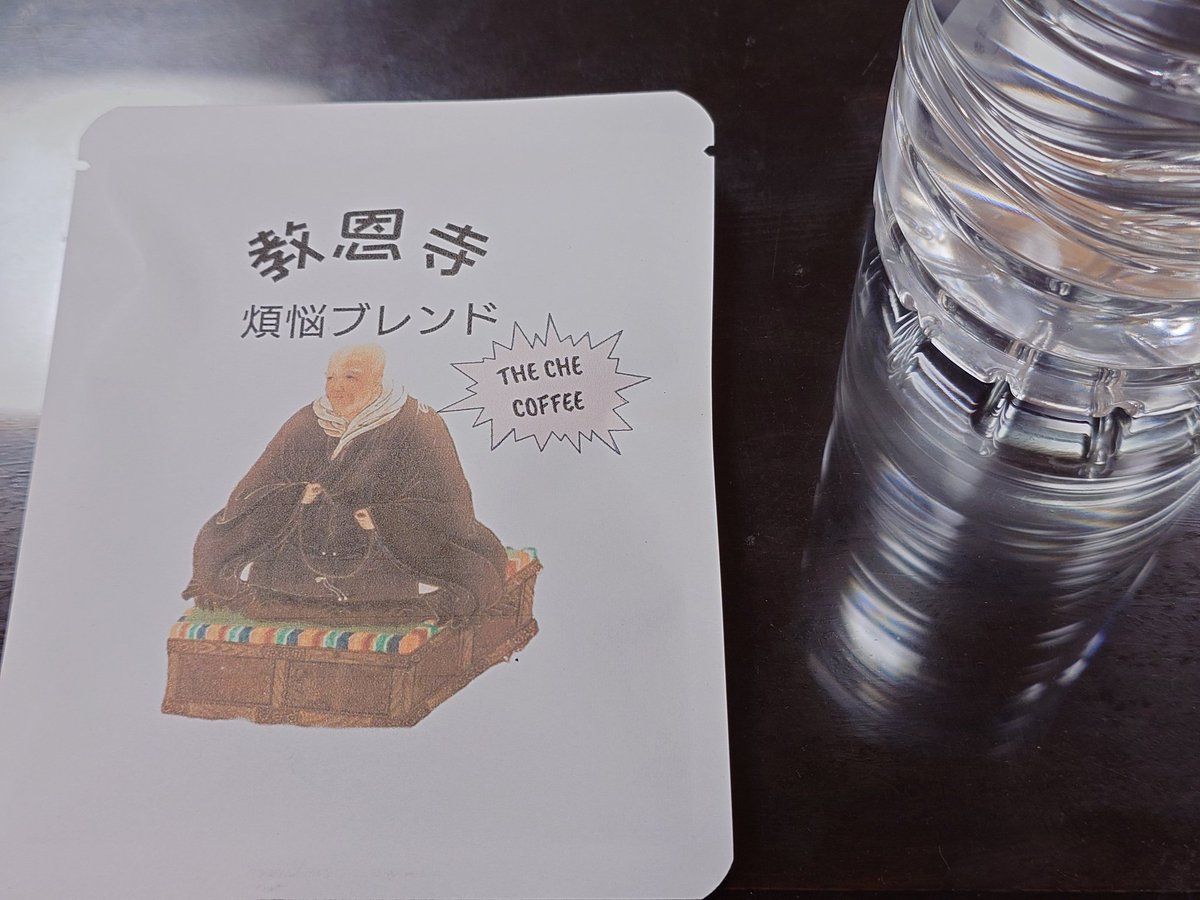 教恩寺
煩悩ブレンド
THE CHE
COFFEE